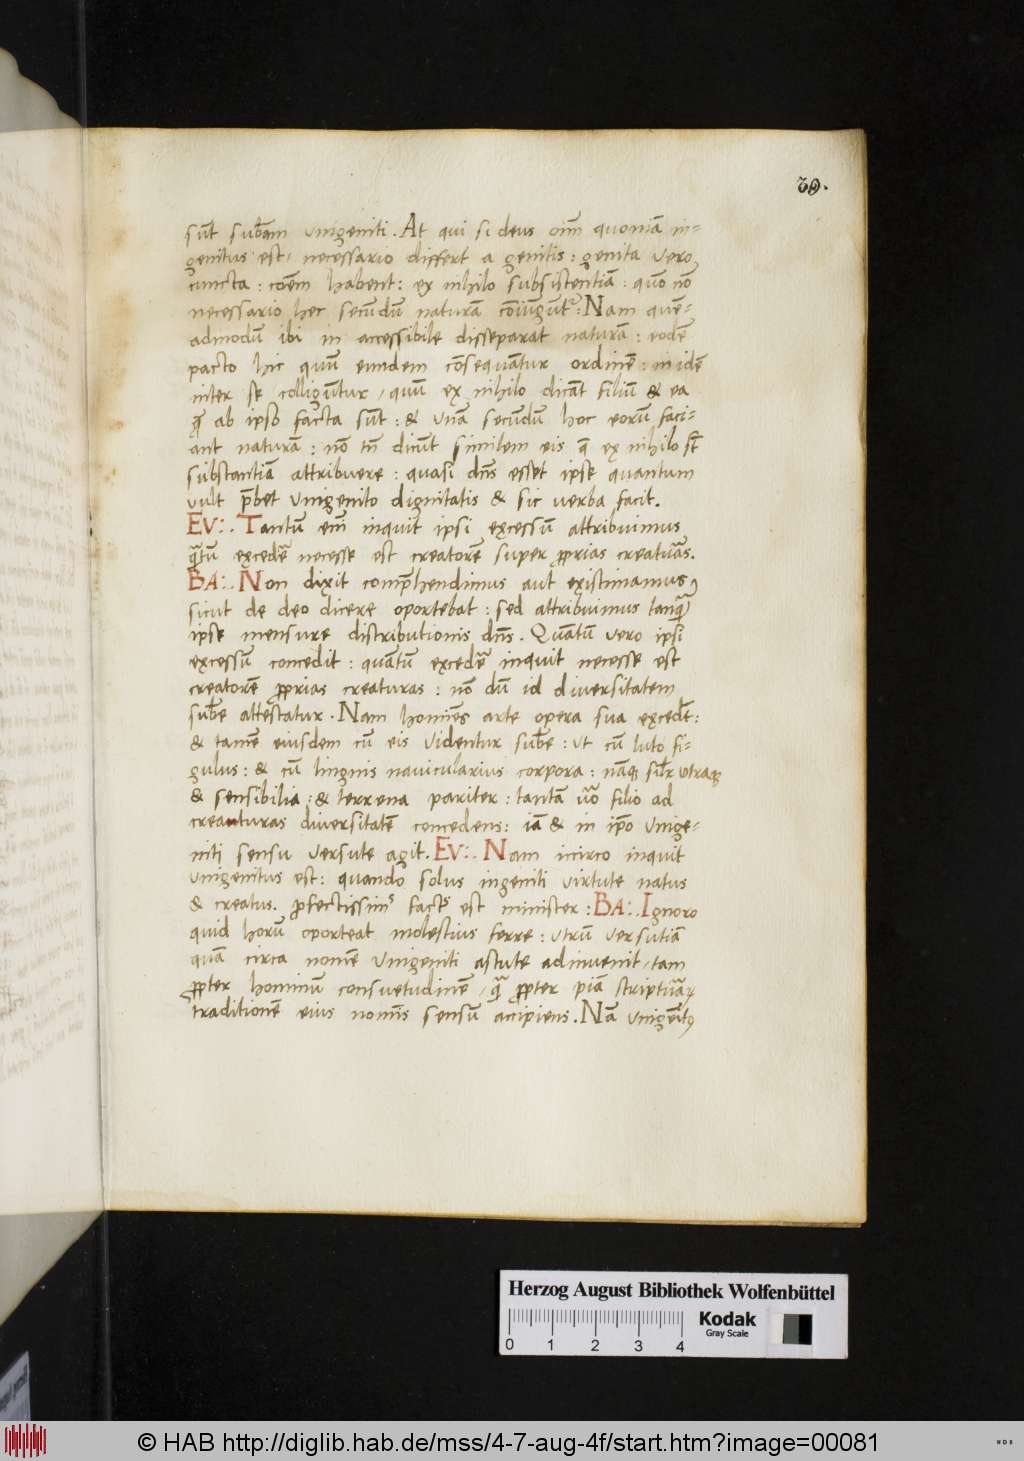 39.
sūt subām unigeniti. At qui si deus oīm quoniā in-
genitus est, necessario differt a genitis: genita vero
cuncta: cōem habent: ex nihilo subsistentiā: quō nō
necessario hec secūdū naturā cōiūgūt: Nam quē-
admodū ibi in accessibile disseparat naturā: eodē
pacto hic quū eumdem cōsequātur ordinē: in idē
inter se colligūtur, quū ex nihilo dicāt filiū & ea
q̄ ab ipso facta sūt: & unā secūdū hoc eorū faci-
ant naturā: nō tn̄ dicūt similem eis q̄ ex nihilo st̄
substantiā attribuere: quasi dn̄s esset ipse quantum
vult p̄bet unigenito dignitatis & sic verba facit.
EV:. Tantū em̄ inquit ipsi excessū attribuimus
q̄tū excedē necesse est creatorē super p̱prias creatūas.
BA:. Non dixit comp̄hendimus aut existimamus
sicut de deo dicere oportebat: sed attribuimus tanq̄
ipse mensure distributionis dn̄s. Quātū vero ipsi
excessū concedit: quātū excedē inquit necesse est
creatorē p̱prias creaturas: nō dū id diversitatem
sub̄e attestatur. Nam homīes arte opera sua excedūt:
& tamē eiusdem cū eis videntur sub̄e: ut cū luto fi-
gulus: & cū lingnis navicularius corpora: nāq̄ siłr utraq̄
& sensibilia: & terrena pariter: tantā ūo filio ad
creanturas diversitatē concedens: iā & in ip̄o unige-
niti sensu versute agit. EV:. Nam iccirco inquit
unigenitus est: quando solus ingeniti virtute natus
& creatus. p̱fectissim⁹ fact⁹ est minister: BA:. Ignoro
quid horū oporteat molestius ferre: utrū versutiā
quā circa nomē unigeniti astute adinvenit, tam
p̱pter hominū consuetudinē, q̄ p̱pter piā scriptūaꝝ
traditionē eius nomīs sensū accipiens. Nā unigēit⁹
Herzog August Bibliothek Wolfenbüttel
0 1 2 3 4
Kodak
Gray Scale
© HAB http://diglib.hab.de/mss/4-7-aug-4f/start.htm?image=00081